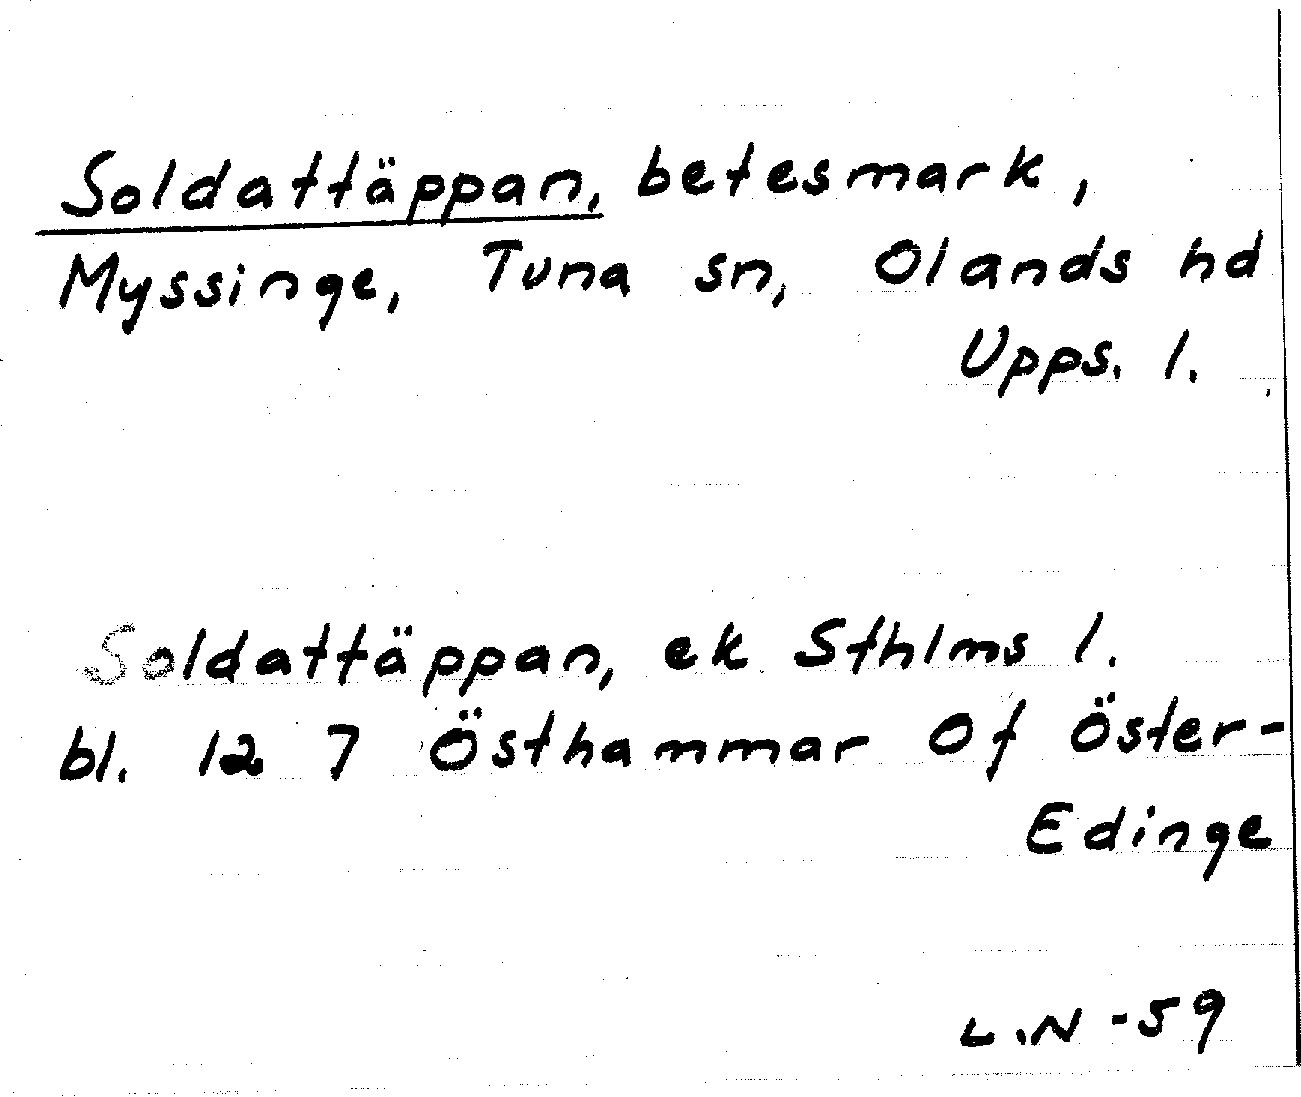 Soldattäppan, betesmark,
Myssinge, Tuna sn, Olands hd
Upps. l.
Soldattäppan, ek Sthlms l.
bl. 12 7 Östhammar Of Öster-
Edinge
L.N -59